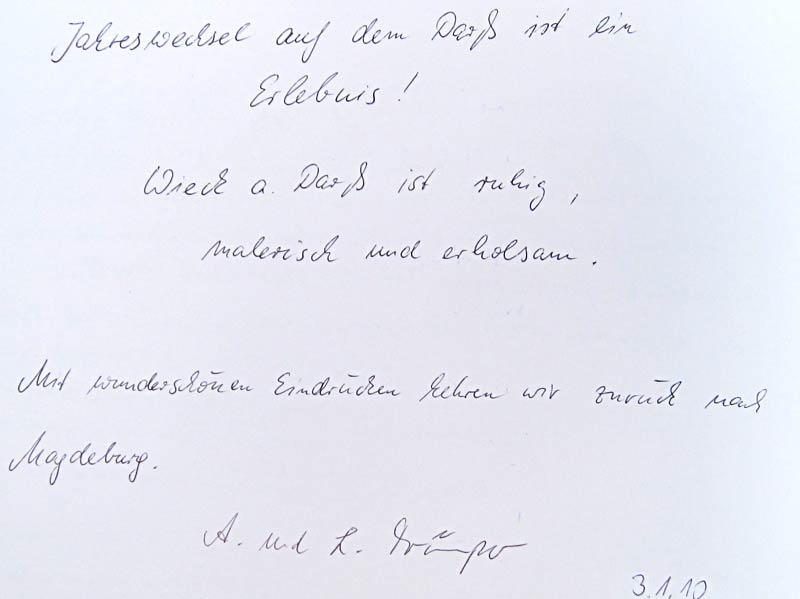 Jahreswechsel auf dem Darß ist ein
Erlebnis!
Wieck a. Darß ist ruhig,
malerisch und erholsam.
Mit wunderschönen Eindrücken kehren wir zurück nach
Magdeburg.
A. und L.
3.1.10